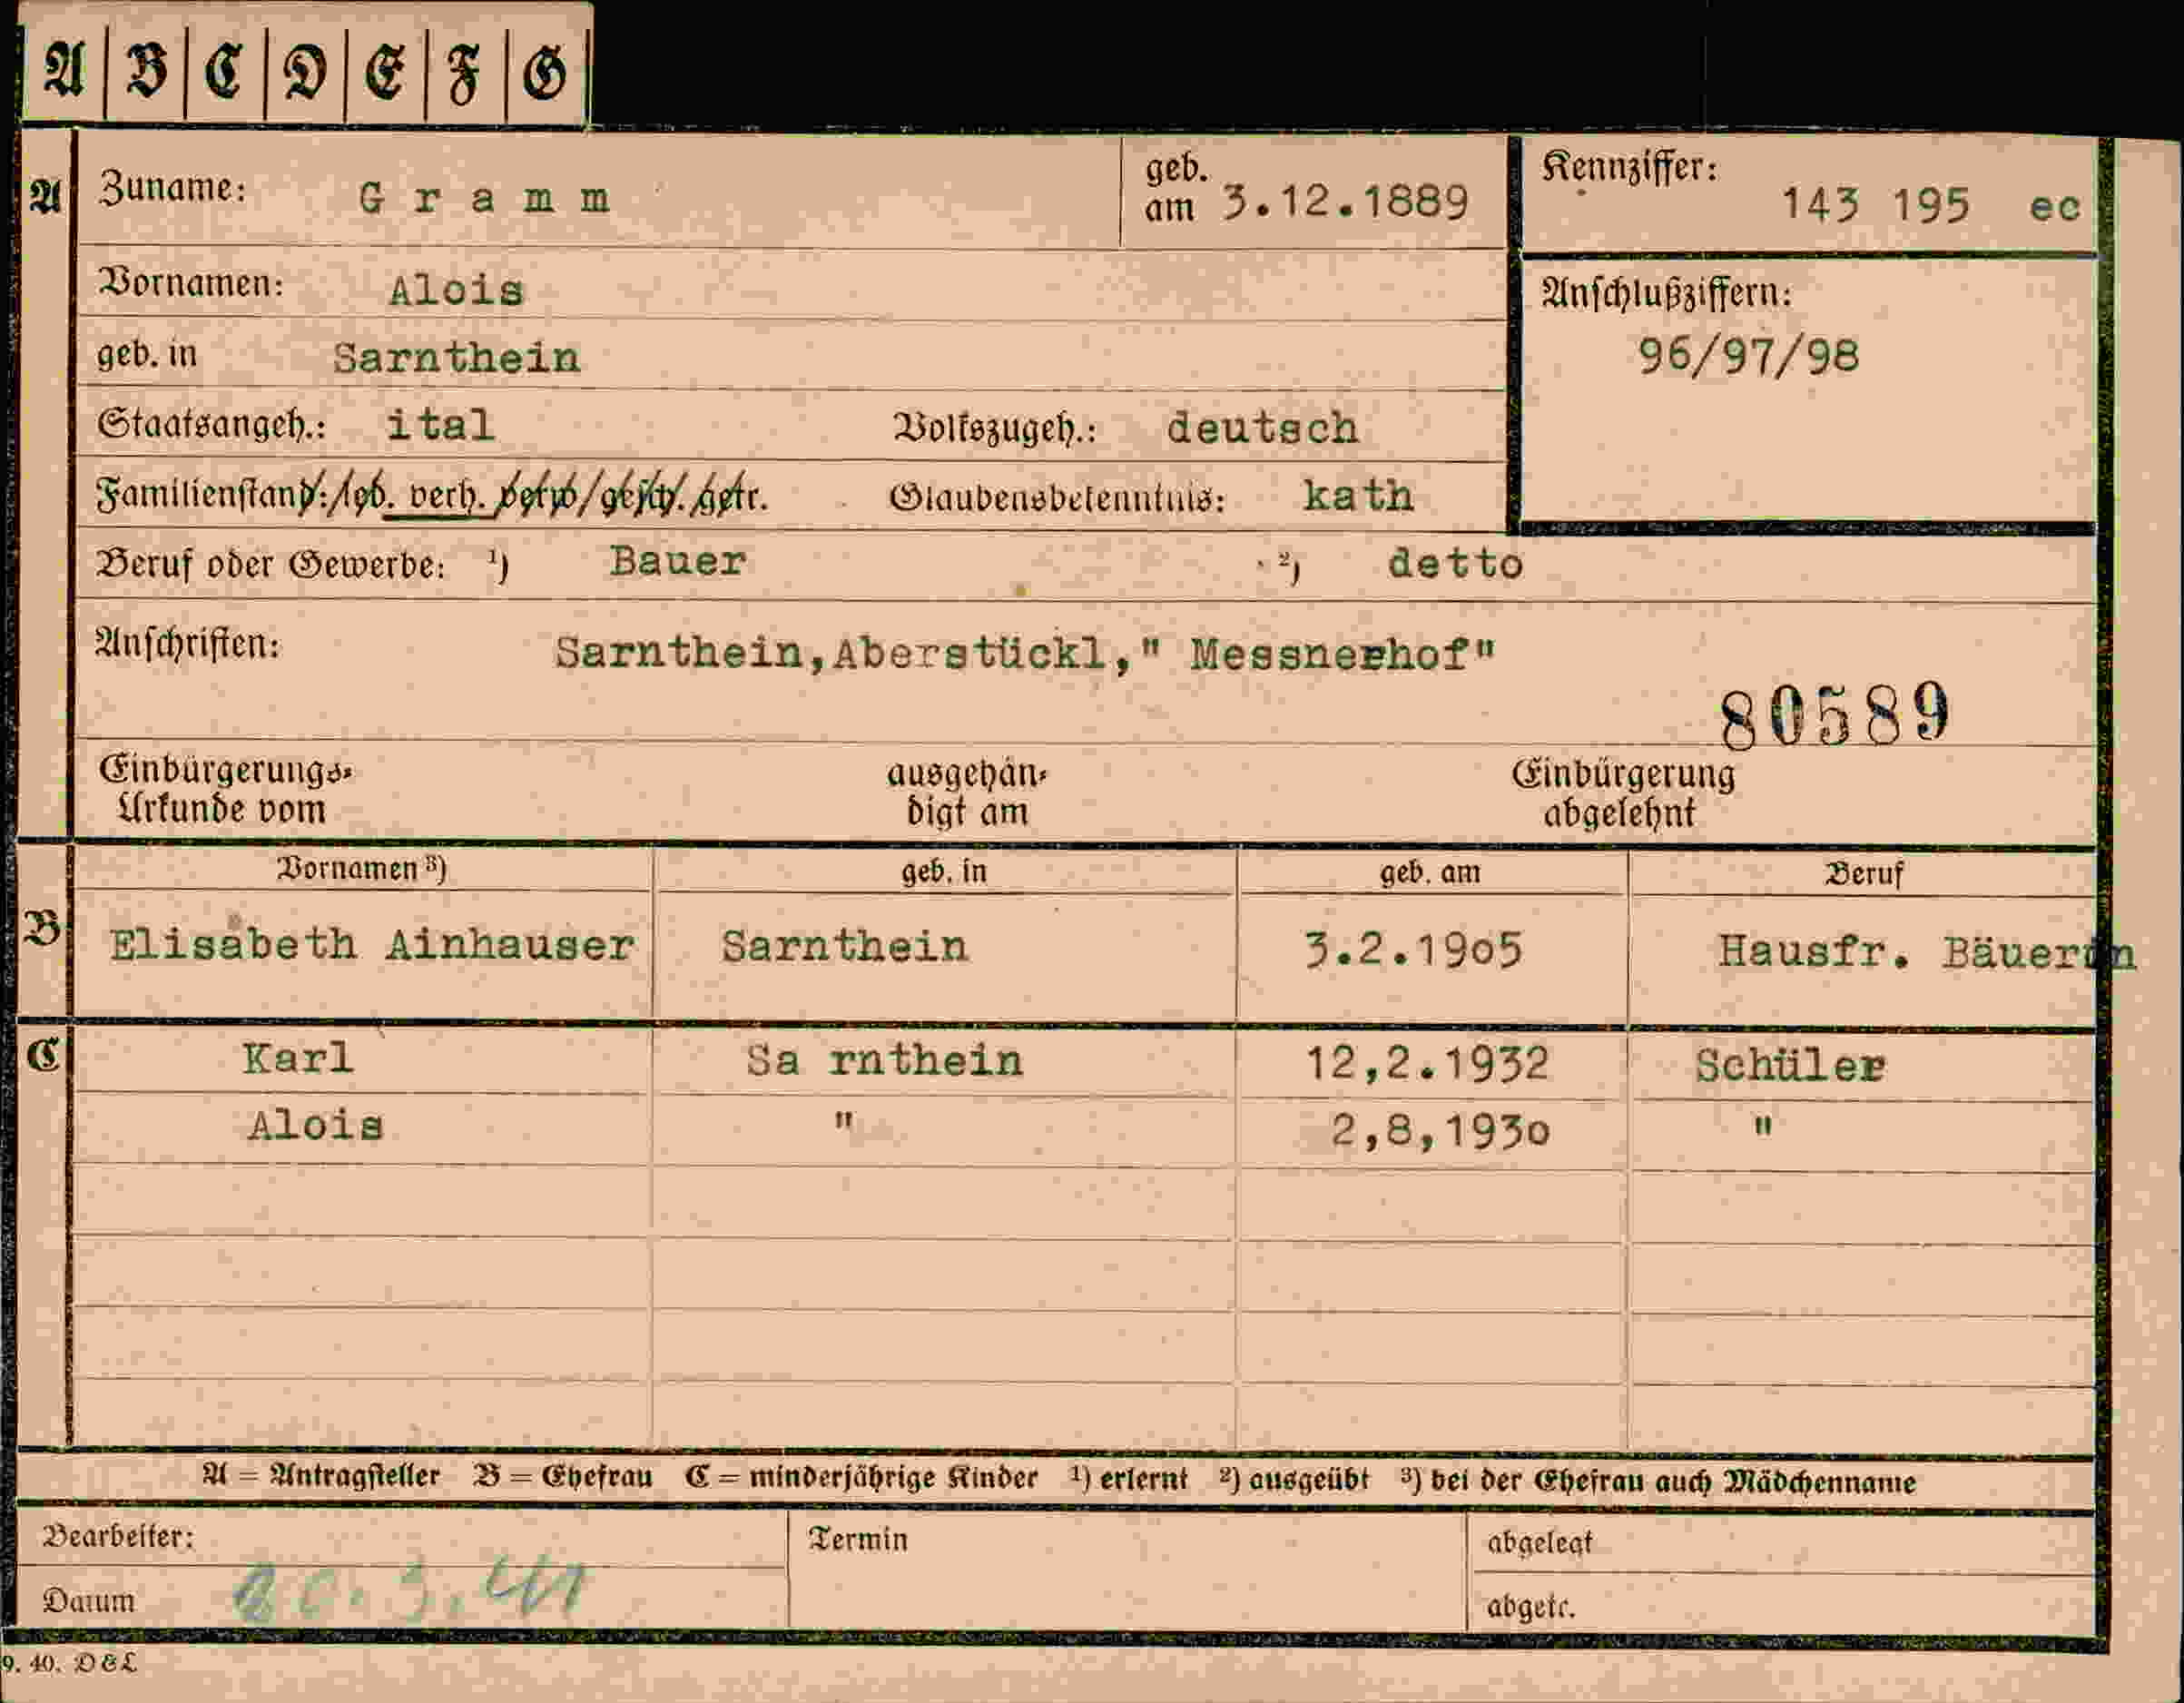 A B C D E F G
A Zuname: Gramm geb. am 3.12.1889 Kennziffer: 143 195 ec
Vornamen: Alois Anschlußziffern:
geb. in Sarnthein 96/97/98
Staatsangeh.: ital Volkszugeh.: deutsch
Familienstand: led. verh. verw. gesch. getr. Glaubensbekenntnis: kath
Beruf oder Gewerbe: ¹) Bauer ²) detto
Anschriften: Sarnthein,Aberstückl," Messnerhof"
80589
Einbürgerungs- ausgehän- Einbürgerung
Urkunde vom digt am abgelehnt
Vornamen ³) geb. in geb. am Beruf
B Elisabeth Ainhauser Sarnthein 3.2.1905 Hausfr. Bäuerin
C Karl Sa rnthein 12,2.1932 Schüler
Alois " 2,8,1930 "
A = Antragsteller B = Ehefrau C = minderjährige Kinder ¹) erlernt ²) ausgeübt ³) bei der Ehefrau auch Mädchenname
Bearbeiter: Termin abgelegt
Datum abgetr.
9. 40. D&L